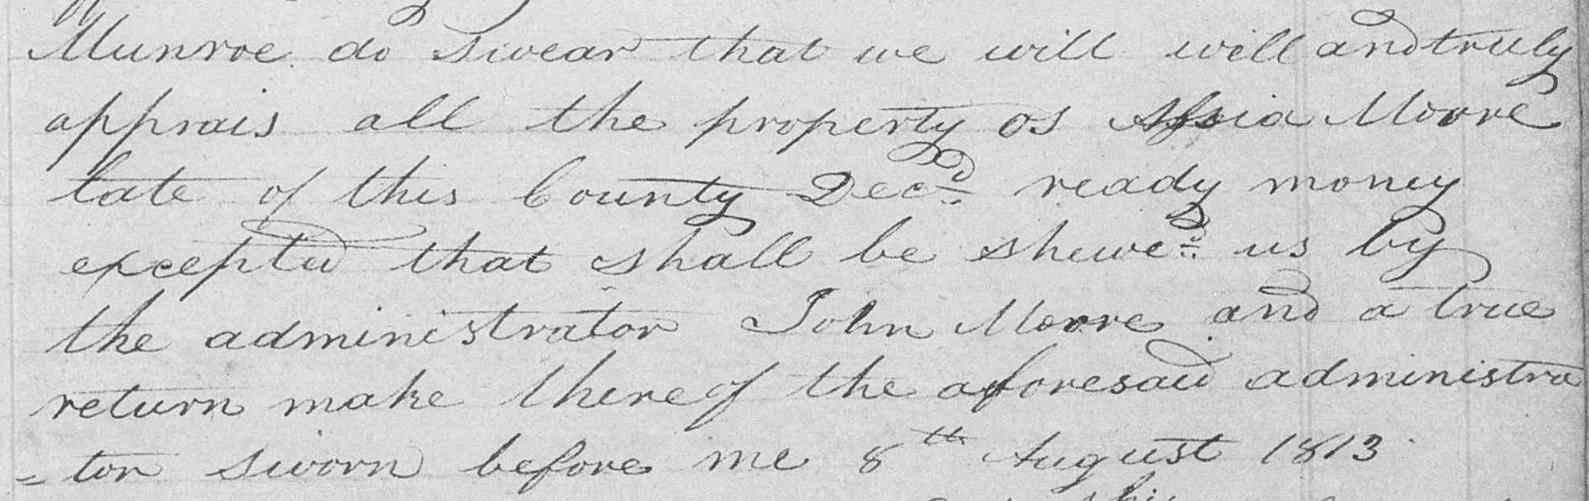 Munroe do Swear that we will will and truly
apprais all the property os Moore
late of this County Decd ready money
excepted that shall be shewed us by
the administrator John Moore and a true
return make thereof the aforesaid administra
= tor sworn before me 8th August 1813